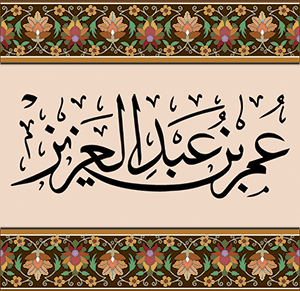 عُمر بنُ عَبدِ العَزيزْ